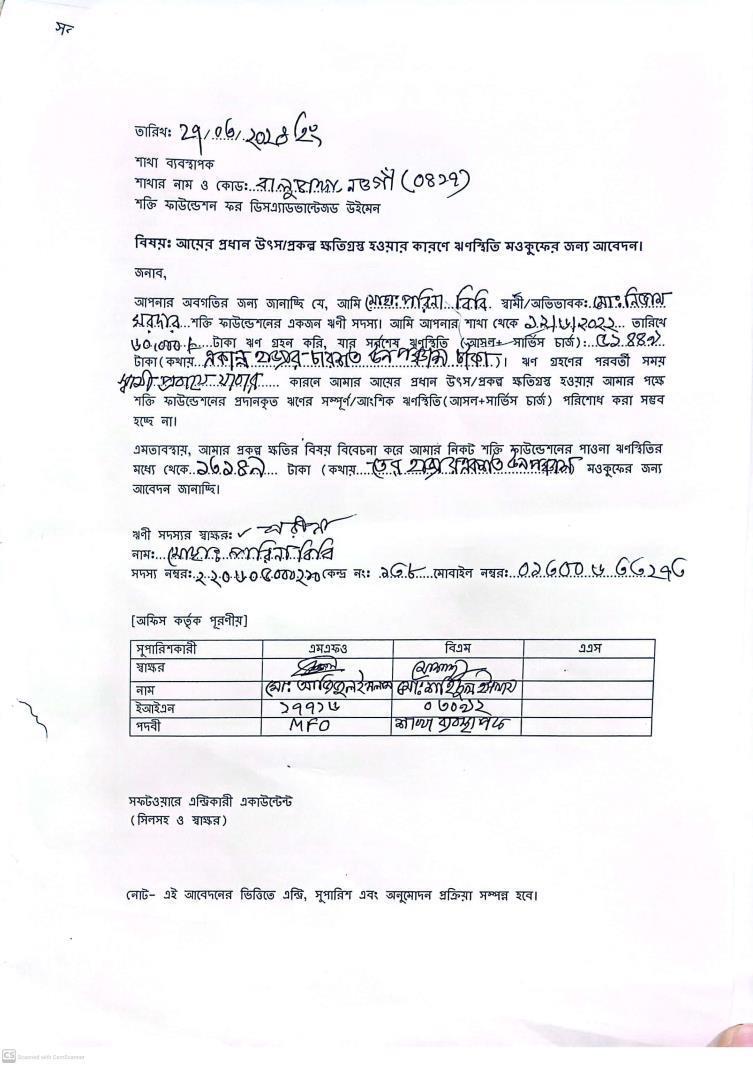 সন
তারিথ: 29/06/2024 ইং
শাথা ব্যবস্থাপক
শাথার নাম ও কোড: নওগাঁ (0429)
শক্তি ফাউন্ডেশন ফর ডিসএ্যাডভান্টেজড উইমেন
বিষয়: আয়ের প্রধান উৎস/প্রকল্প ক্ষতিগ্রস্ত হওয়ার কারণে ঋণস্থিতি মওকুফের জন্য আবেদন।
জনাব,
আপনার অবগতির জন্য জানাচ্ছি যে, আমি মোছাঃ পারিনা বিবি স্বামী/অভিভাবক: মো:
সরদার শক্তি ফাউন্ডেশনের একজন ঋণী সদস্য। আমি আপনার শাথা থেকে তারিথে
৬০,০০০/- টাকা ঋণ গ্রহন করি, যার সর্বশেষ ঋণস্থিতি (আসল+ সার্ভিস চার্জ): ৫১৪৪৯
টাকা (কথায় একান্ন হাজার চারশত উনপঞ্চাশ টাকা)। ঋণ গ্রহণের পরবর্তী সময়
স্বামী প্রবাসে যাবার কারনে আমার আয়ের প্রধান উৎস/প্রকল্প ক্ষতিগ্রস্ত হওয়ায় আমার পক্ষে
শক্তি ফাউন্ডেশনের প্রদানকৃত ঋণের সম্পূর্ণ/আংশিক ঋণস্থিতি(আসল+সার্ভিস চার্জ) পরিশোধ করা সম্ভব
হচ্ছে না।
এমতাবস্থায়, আমার প্রকল্প ক্ষতির বিষয় বিবেচনা করে আমার নিকট শক্তি ফাউন্ডেশনের পাওনা ঋণস্থিতির
মধ্যে থেকে টাকা (কথায় তের হাজার উনপঞ্চাশ মওকুফের জন্য
আবেদন জানাচ্ছি।
ঋণী সদস্যর স্বাক্ষর:
নাম: মোছাঃ পারিনা বিবি
সদস্য নম্বর: কেন্দ্র নং: মোবাইল নম্বর:
[অফিস কর্তৃক পূরণীয়]
সুপারিশকারী এমএফও বিএম এএস
স্বাক্ষর
নাম মো:
ইআইএন
পদবী MFO শাখা ব্যবস্থাপক
সফটওয়ারে এন্ট্রিকারী একাউন্টেন্ট
(সিলসহ ও স্বাক্ষর)
নোট- এই আবেদনের ভিত্তিতে এন্ট্রি, সুপারিশ এবং অনুমোদন প্রক্রিয়া সম্পন্ন হবে।
CS Scanned with CamScanner